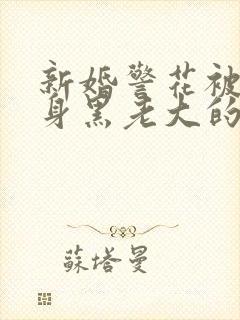 新婚警花被
身黑老大的
蘇塔曼